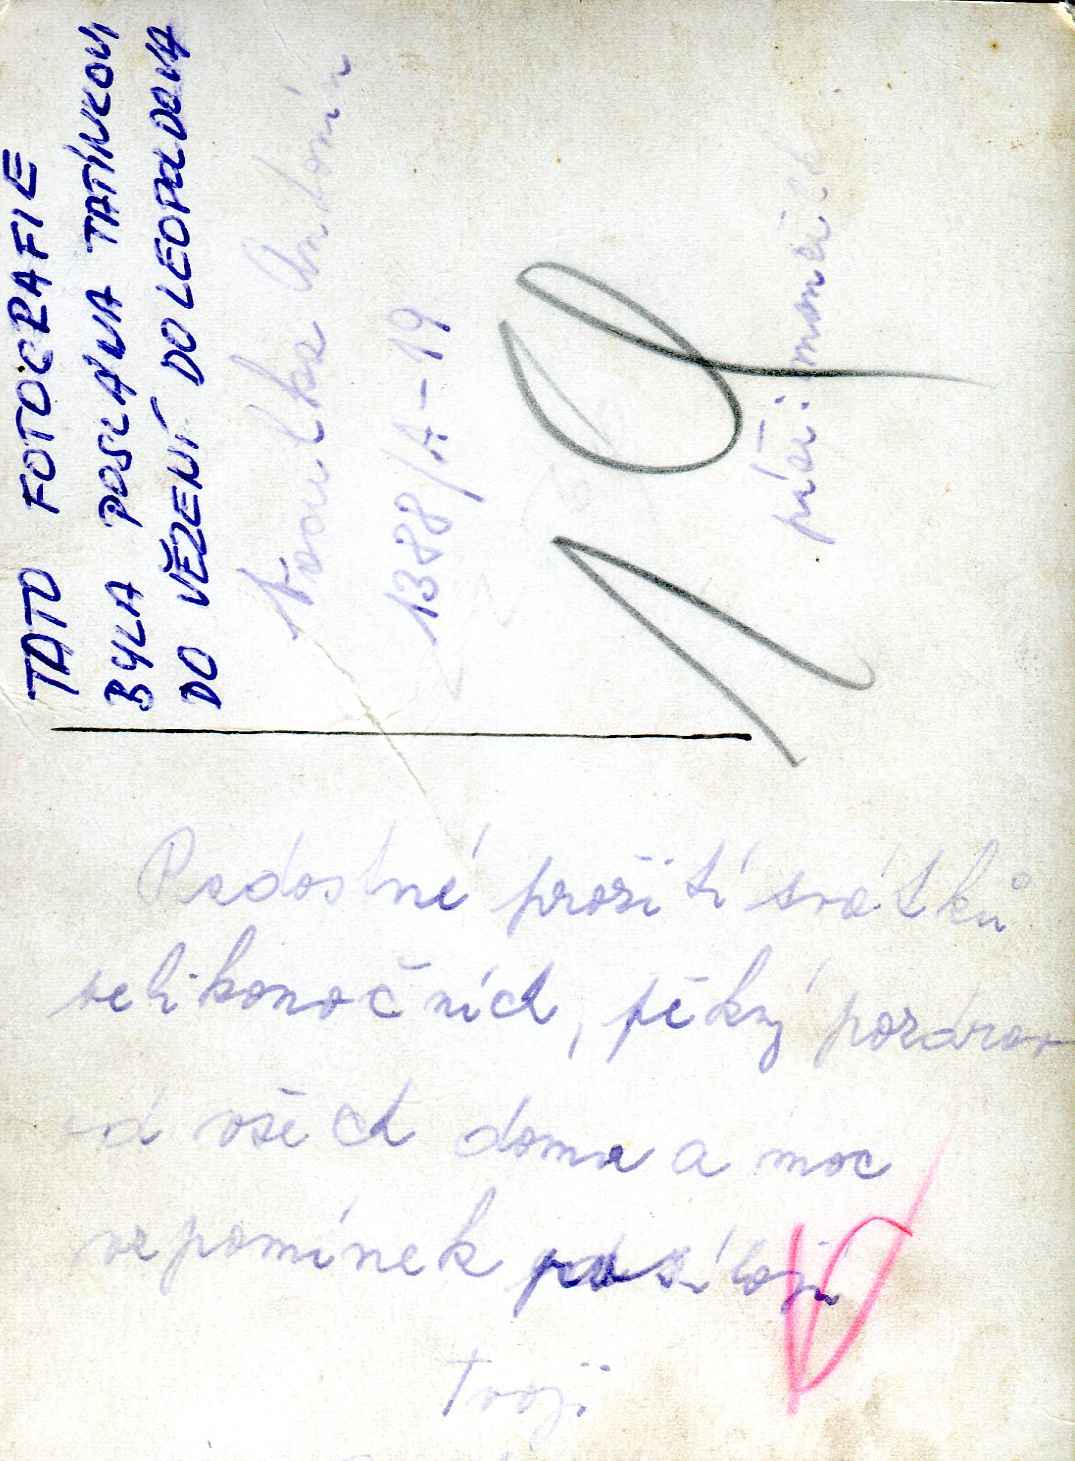 TATO FOTOGRAFIE
BYLA POSLÁNA TATÍNKOVI
DO VĚZENÍ DO LEOPOLDOVA
Antonín
1388/A-19
píší: maminka
Radostné prožití svátků
velikonočních, pěkný pozdrav
od všech doma a moc
vzpomínek posílají
Tvoji